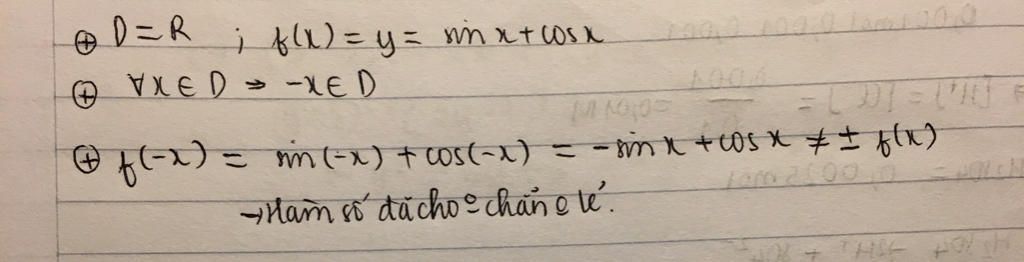 ⊕ D = R ; f(x) = y = sin x + cos x
⊕ ∀x ∈ D ⇒ -x ∈ D
⊕ f(-x) = sin(-x) + cos(-x) = -sin x + cos x ≠ ± f(x)
→ Hàm số đã cho o chẵn o lẻ.